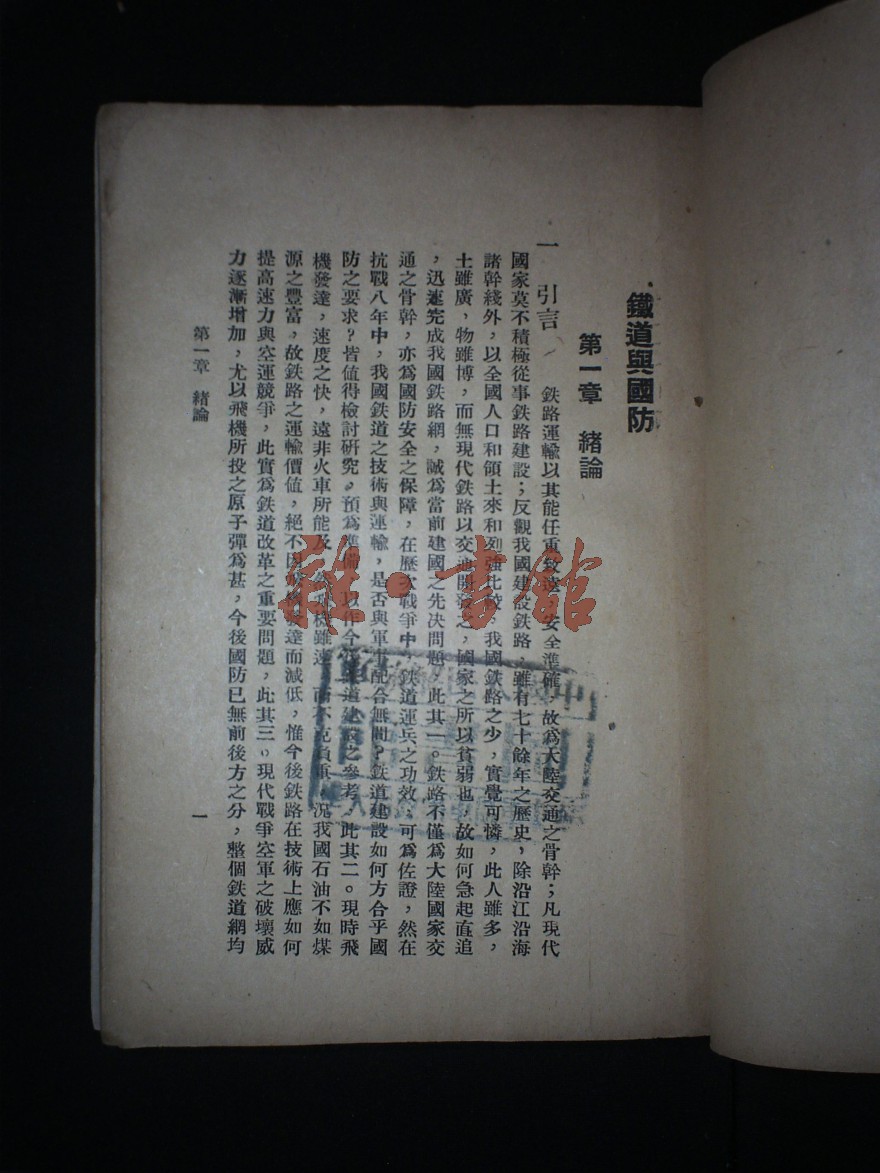 鐵道與國防
第一章 緒論
一 引言 鉄路運輸以其能任重致遠，安全準確，故爲大陸交通之骨幹；凡現代
國家莫不積極從事鉄路建設；反觀我國建設鉄路，雖有七十餘年之歷史，除沿江沿海
諸幹綫外，以全國人口和領土來和列強比較，我國鉄路之少，實覺可憐，此人雖多，
土雖廣，物雖博，而無現代鉄路以交通開發之，國家之所以貧弱也，故如何急起直追
，迅速完成我國鉄路網，誠爲當前建国之先決問題，此其一。鉄路不僅爲大陸國家交
通之骨幹，亦爲國防安全之保障，在歷次戰爭中，鉄道運兵之功效，可爲佐證，然在
抗戰八年中，我國鉄道之技術與運輸，是否與軍事配合無間？鉄道建設如何方合乎國
防之要求？皆值得檢討研究。預爲準備，以作今後鉄道建設之參考，此其二。現時飛
機發達，速度之快，遠非火車所能及，然飛機雖速，而不克負重，况我國石油不如煤
源之豐富，故鉄路之運輸價值，絕不因飛機發達而減低，惟今後鉄路在技術上應如何
提高速力與空運競爭，此實爲鉄道改革之重要問題，此其三。現代戰爭空軍之破壞威
力逐漸增加，尤以飛機所投之原子彈爲甚，今後國防已無前後方之分，整個鉄道網均
第一章 緒論
一
雅·書館